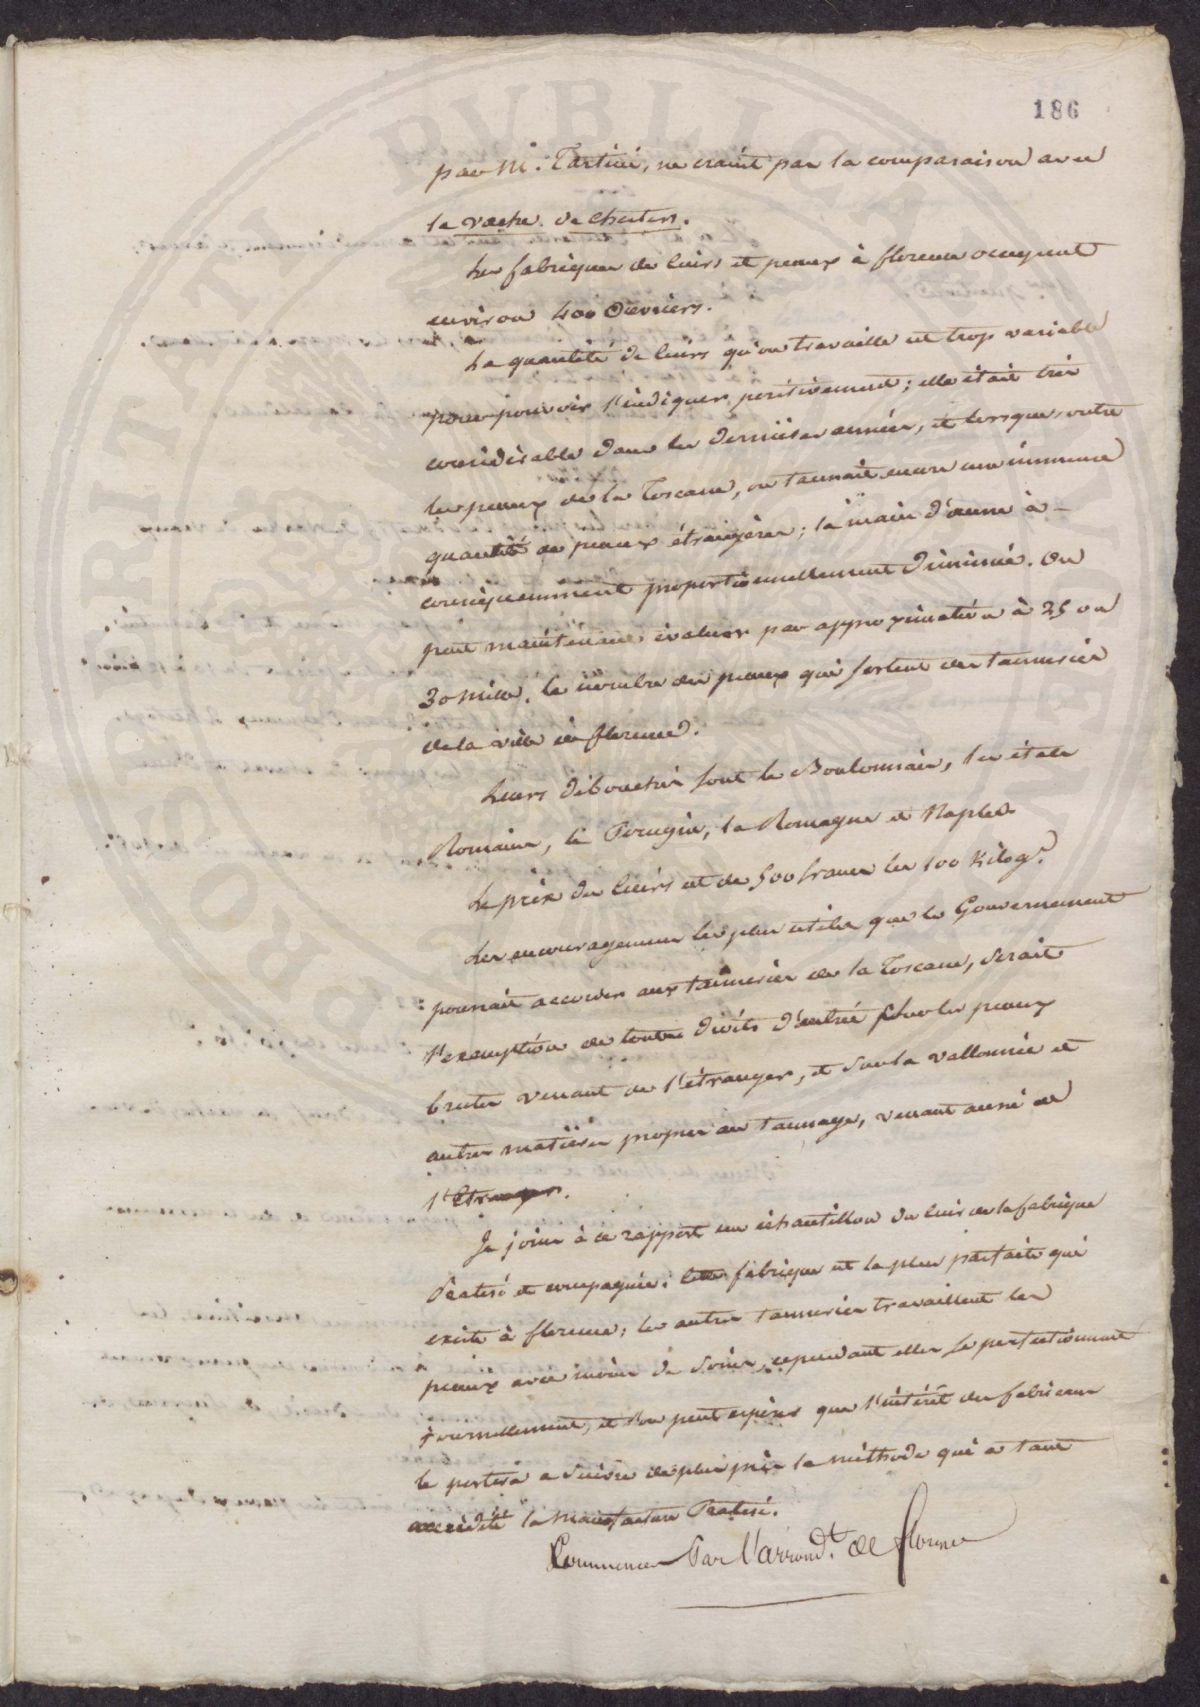 186
par M. Tartini, ne craint pas la comparaison avec
la vache de
Les fabriques de Cuirs et peaux à florence occupent
environ 400 Ouvriers.
La quantité de Cuirs qu'on travaille est trop variable
pour pouvoir l'indiquer positivement; elle était très
considérable dans les dernières années, et lorsque, outre
les peaux de la Toscane, on tannait encore une immense
quantité de peaux étrangères; la main d'œuvre à
conséquemment proportionnellement diminué. On
peut maintenant évaluer par approximation à 25 ou
30 mille, le nombre des peaux qui sortent des tanneries
de la ville de florence.
Leurs débouchés sont le Boulonnais, les états
Romains, le Perugin, la Romagne et Naples
Le prix des Cuirs est de 500 francs les 100 Kilog.s
Les encouragemens les plus utiles que le Gouvernement
pourrait accorder aux tanneries de la Toscane, serait
l'exemption de toutes droits d'entrée sur les peaux
brutes venant de l'étranger, et sur la vallonnée et
autres matières propres au tannage, venant aussi de
l'Etranger.
Je joins à ce rapport un échantillon du Cuir de la fabrique
Pratesi et compagnie; Cette fabrique est la plus parfaite qui
existe à florence; les autres tanneries travaillent les
peaux avec moins de soins, cependant elles se perfectionnent
journellement, et l'on peut espérer que l'intérêt des fabricans
le portera a suivre de plus près la méthode qui a tant
accrédité la Manufacture Pratesi.
Commencer Par l'arrond.t de florence